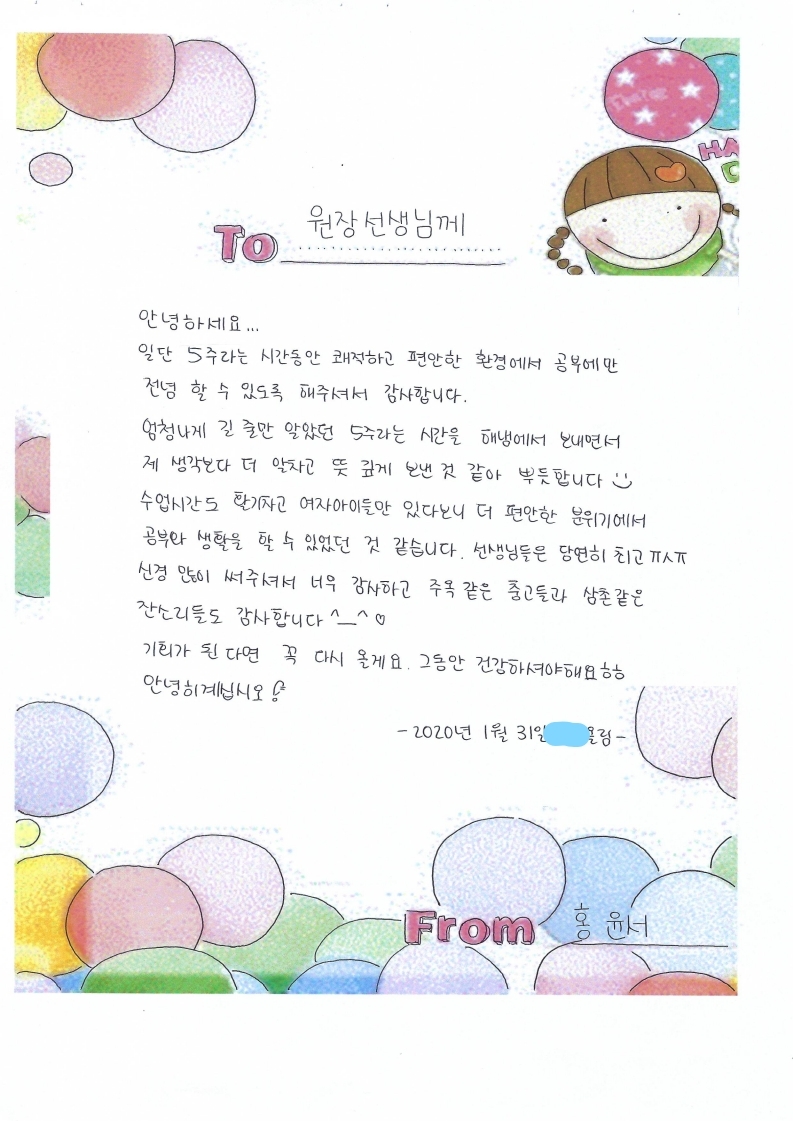 HA
To 원장선생님께
안녕하세요...
일단 5주라는 시간동안 쾌적하고 편안한 환경에서 공부에만
전념 할 수 있도록 해주셔서 감사합니다.
엄청나게 긴 줄만 알았던 5주라는 시간을 해냄에서 보내면서
제 생각보다 더 알차고 뜻 깊게 보낸 것 같아 뿌듯합니다
수업시간도 활기차고 여자아이들만 있다보니 더 편안한 분위기에서
공부와 생활을 할 수 있었던 것 같습니다. 선생님들은 당연히 최고 ㅠㅅㅠ
신경 많이 써주셔서 너무 감사하고 주옥 같은 충고들과 삼촌같은
잔소리들도 감사합니다 ^__^ ♡
기회가 된다면 꼭 다시 올게요. 그동안 건강하셔야해요ㅎㅎ
안녕히계십시오
-2020년 1월 31일 올림-
From 홍윤서